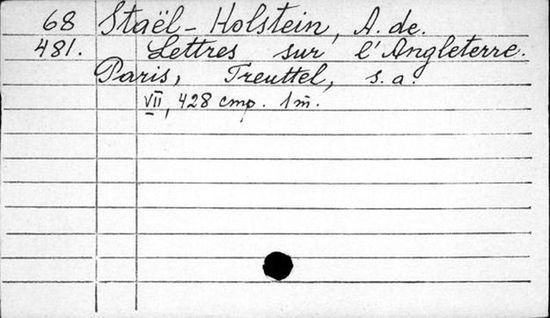 68 Staël-Holstein, A. de.
481. Lettres sur l'Angleterre.
Paris, Treuttel, s.a.
VII, 428 стр. 1 m̄.